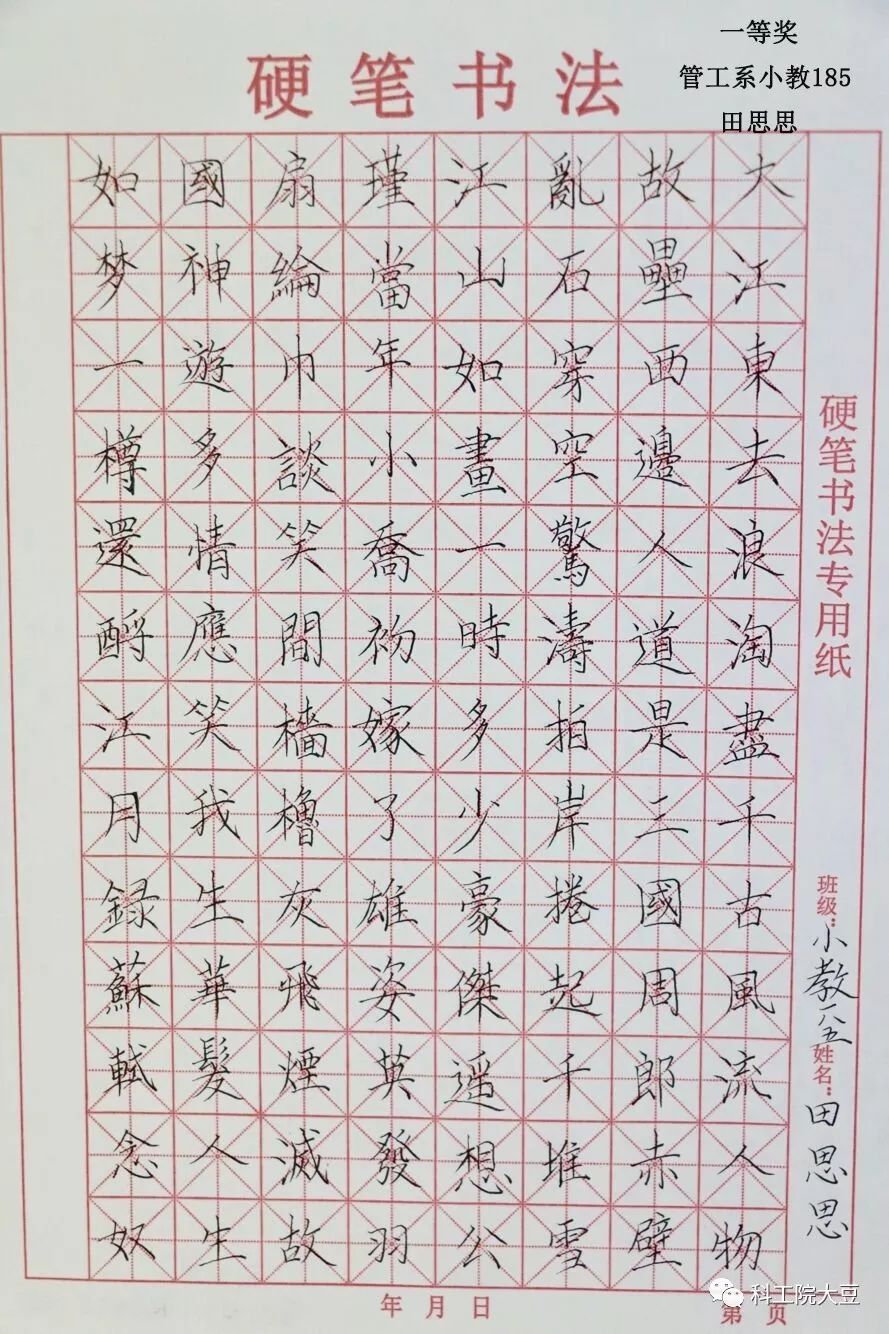 一等奖
管工系小教185
田思思
硬笔书法
大江東去浪淘盡千古風流人物
故壘西邊人道是三國周郎赤壁
亂石穿空驚濤拍岸捲起千堆雪
江山如畫一時多少豪傑遥想公
瑾當年小喬初嫁了雄姿英發羽
扇綸巾談笑間檣櫓灰飛煙滅故
國神遊多情應笑我生華髮人生
如梦一樽還酹江月録蘇軾念奴
硬笔书法专用纸
班级:小教一八五姓名:田思思
年月日
第 页
科工院大豆